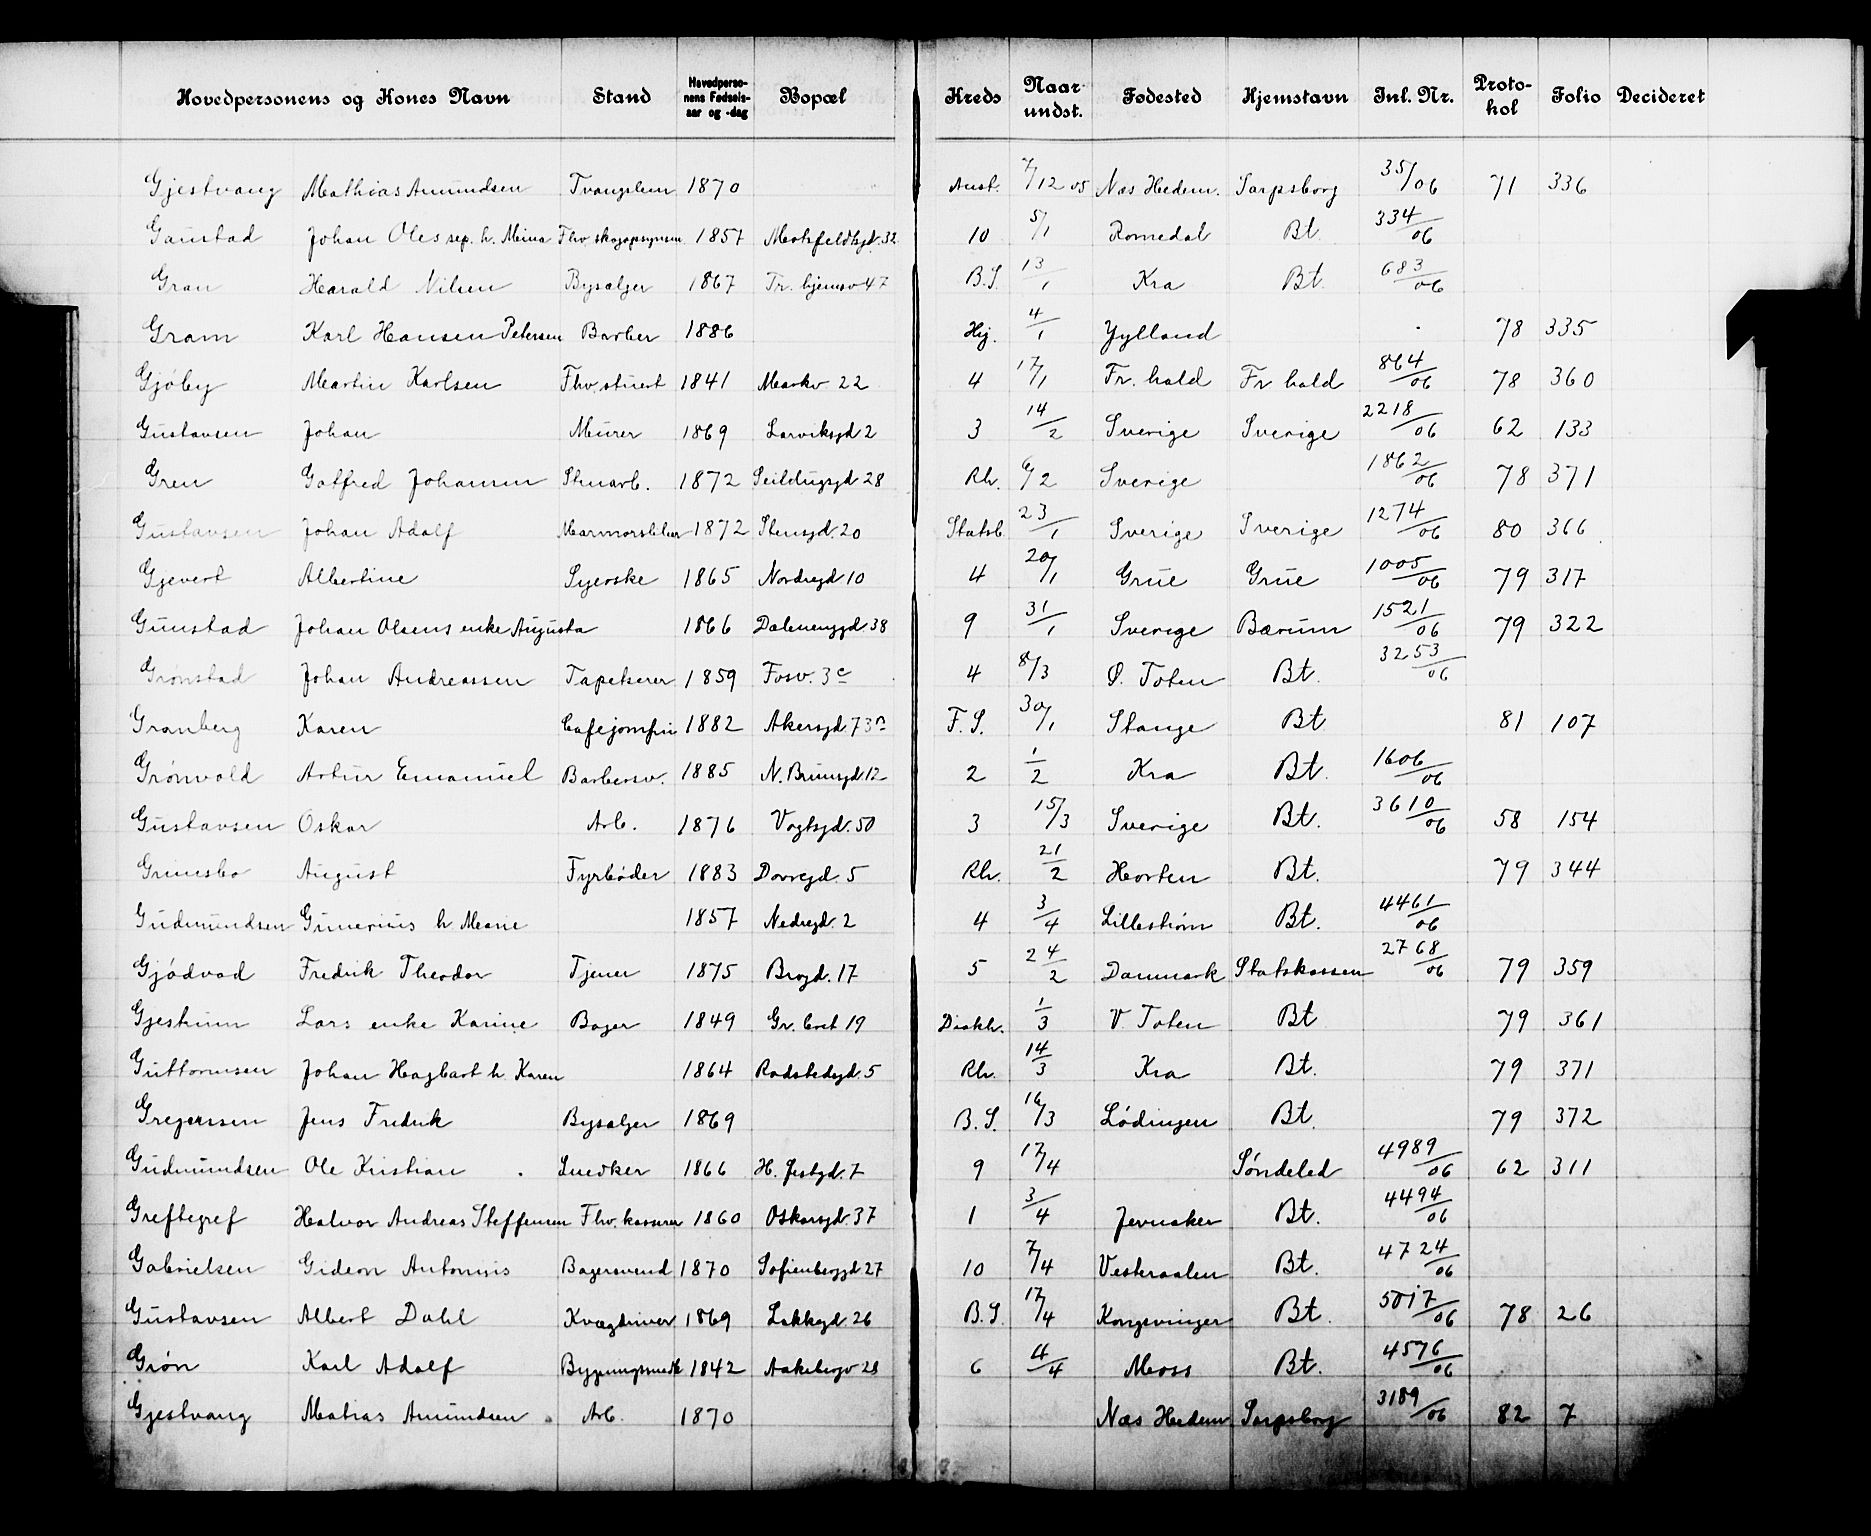 Hovedpersonens og Kones Navn Stand Hovedperso-nens Fødsels-aar og -dag Bopæl Kreds Naar undst. Fødested Hjemstavn Inl. Nr. Proto-kol Folio Decideret
Gjestvang Mathias Amundsen Tvangslem 1870 Anst. 7/12 05 Næs Hedem. Sarpsborg 35/06 71 336
Gaustad Johan Oles sep. h. Mina Fhv. skogopsynsm 1857 10 5/1 Romedal Bt. 334/06
Gran Harald Nilsen Bysælger 1867 Tr. hjemsv 47 B.S. 13/1 Kra Bt. 683/06
Gram Karl Hansen Petersen Barber 1886 Hj. 4/1 Jylland 78 335
Gjøby Martin Karlsen Fhv. stuert 1841 Markv 22 4 17/1 Fr. hald Fr hald 864/06 78 360
Gustavsen Johan Murer 1869 Larviksgd 2 3 14/2 Sverige Sverige 2218/06 62 133
Gren Gotfred Johansen Stenarb. 1872 Seildugsgd 28 Rh. 6/2 Sverige 1862/06 78 371
Gustavsen Johan Adolf 1872 Stensgd. 20 Statsb. 23/1 Sverige Sverige 1274/06 80 366
Gjevert Albertine Syerske 1865 Nordregd 10 4 20/1 Grue Grue 1005/06 79 317
Gunstad Johan Olsens enke Augusta 1866 Dælenenggd 38 9 31/1 Sverige Bærum 1521/06 79 322
Grønstad Johan Andreassen Tapetserer 1859 Fosv. 3c 4 8/3 Ø. Toten Bt. 3253/06
Granberg Karen Cafejomfru 1882 Akersgd. 73 F.S. 30/1 Stange Bt. 81 107
Grønvold Artur Emanuel Barbersv. 1885 N. Brunsgd. 12 2 1/2 Kra Bt. 1606/06
Gustavsen Oskar Arb. 1876 Vogtsgd. 50 3 15/3 Sverige Bt. 3610/06 58 154
Grimsbo August Fyrbøder 1883 Dovregd. 5 Rh. 21/2 Horten Bt. 79 344
Gudmundsen Gunerius h Marie 1857 Nedregd. 2 4 3/4 Lillestrøm Bt. 4461/06
Gjødvad Fredrik Theodor Tjener 1875 Brogd. 17 5 24/2 Danmark Statskassen 2768/06 79 359
Lars enke Karine Bager 1849 19 Diakh. 1/3 V. Toten Bt 79 361
Guttormsen Johan Hagbart h. Karen 1864 Rodstedsgd. 5 Rh. 14/3 Kra Bt. 79 371
Gregersen Jens Fredrik Bysælger 1869 B.S. 16/3 Lødingen Bt. 79 372
Gudmundsen Ole Kristian Snedker 1866 7 9 17/4 Søndeled 4989/06 62 311
Greftegref Halvor Andreas Steffensen Fhv. kasserer 1860 Oskarsgd. 37 1 3/4 Jevnaker Bt. 4494/06
Gabrielsen Gideon Antonius Bagersvend 1870 Sofienberggd 27 10 7/4 Vesteraalen Bt. 4724/06
Gustavsen Albert Dahl Kvægdriver 1869 Lakkegd. 26 B.S. 17/4 Kongsvinger Bt. 5017/06 78 26
Grøn Karl Adolf Bygningssnedk 1842 Aakebergv 28 6 4/4 Moss Bt. 4576/06
Gjestvang Matias Amundsen Arb. 1870 Næs Hedem Sarpsborg 3189/06 82 7